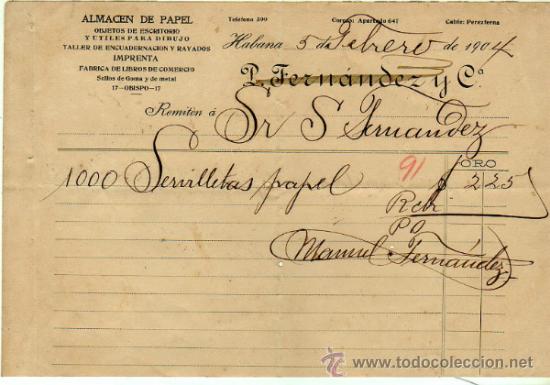 ALMACEN DE PAPEL
OBJETOS DE ESCRITORIO
Y UTILES PARA DIBUJO
TALLER DE ENCUADERNACION Y RAYADOS
IMPRENTA
FABRICA DE LIBROS DE COMERCIO
Sellos de Goma y de metal
17-OBISPO-17
Teléfono 300 Correo: Apartado 641 Cable: Perezterna
Habana 5 de Febrero de 1904
P. Fernández y Ca
Remiten á Sr S Fernandez
ORO
1000 Servilletas papel 91 $ 2 25
Rcbi
PO
Manuel Fernández
todocoleccion
www.todocoleccion.net